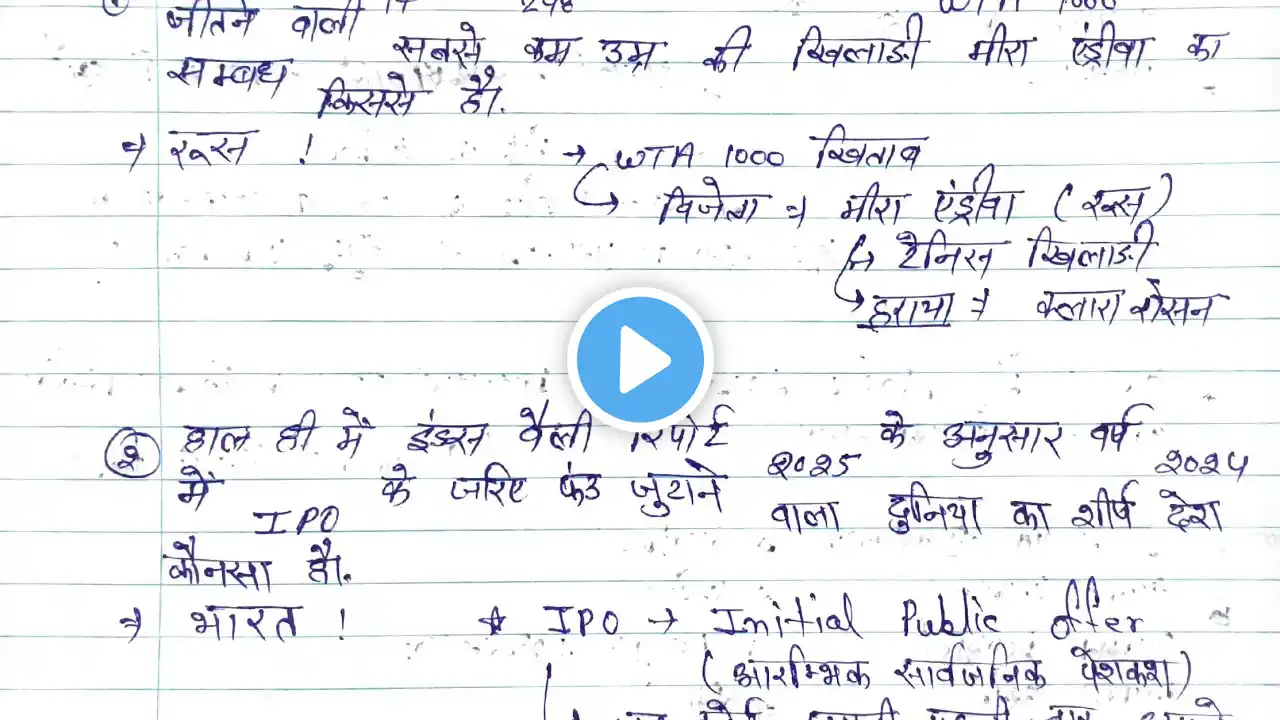 जीतने वाली
सबसे कम उम्र की खिलाडी मीरा एंड्रीवा का
सम्बध किससे है।
⇒ रूस ! → WTA 1000 खिताब
विजेता ⇒ मीरा एंड्रीवा (रूस)
↳ टेनिस खिलाडी
↳ हराया ⇒ क्लारा
② हाल ही में इंडस वैली रिपोर्ट 2025 के अनुसार वर्ष 2024
में IPO के जरिए फंड जुटाने वाला दुनिया का शीर्ष देश
कौनसा है।
⇒ भारत ! * IPO → Initial Public offer
(आरम्भिक सार्वजनिक पेशकश)